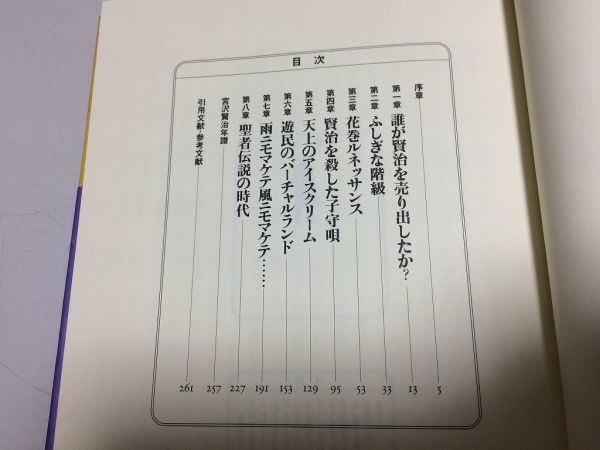 目次
序章 5
第一章 誰が賢治を売り出したか? 13
第二章 ふしぎな階級 33
第三章 花巻ルネッサンス 53
第四章 賢治を殺した子守唄 95
第五章 天上のアイスクリーム 129
第六章 遊民のバーチャルランド 153
第七章 雨ニモマケテ風ニモマケテ…… 191
第八章 聖者伝説の時代 227
宮沢賢治年譜 257
引用文献・参考文献 261